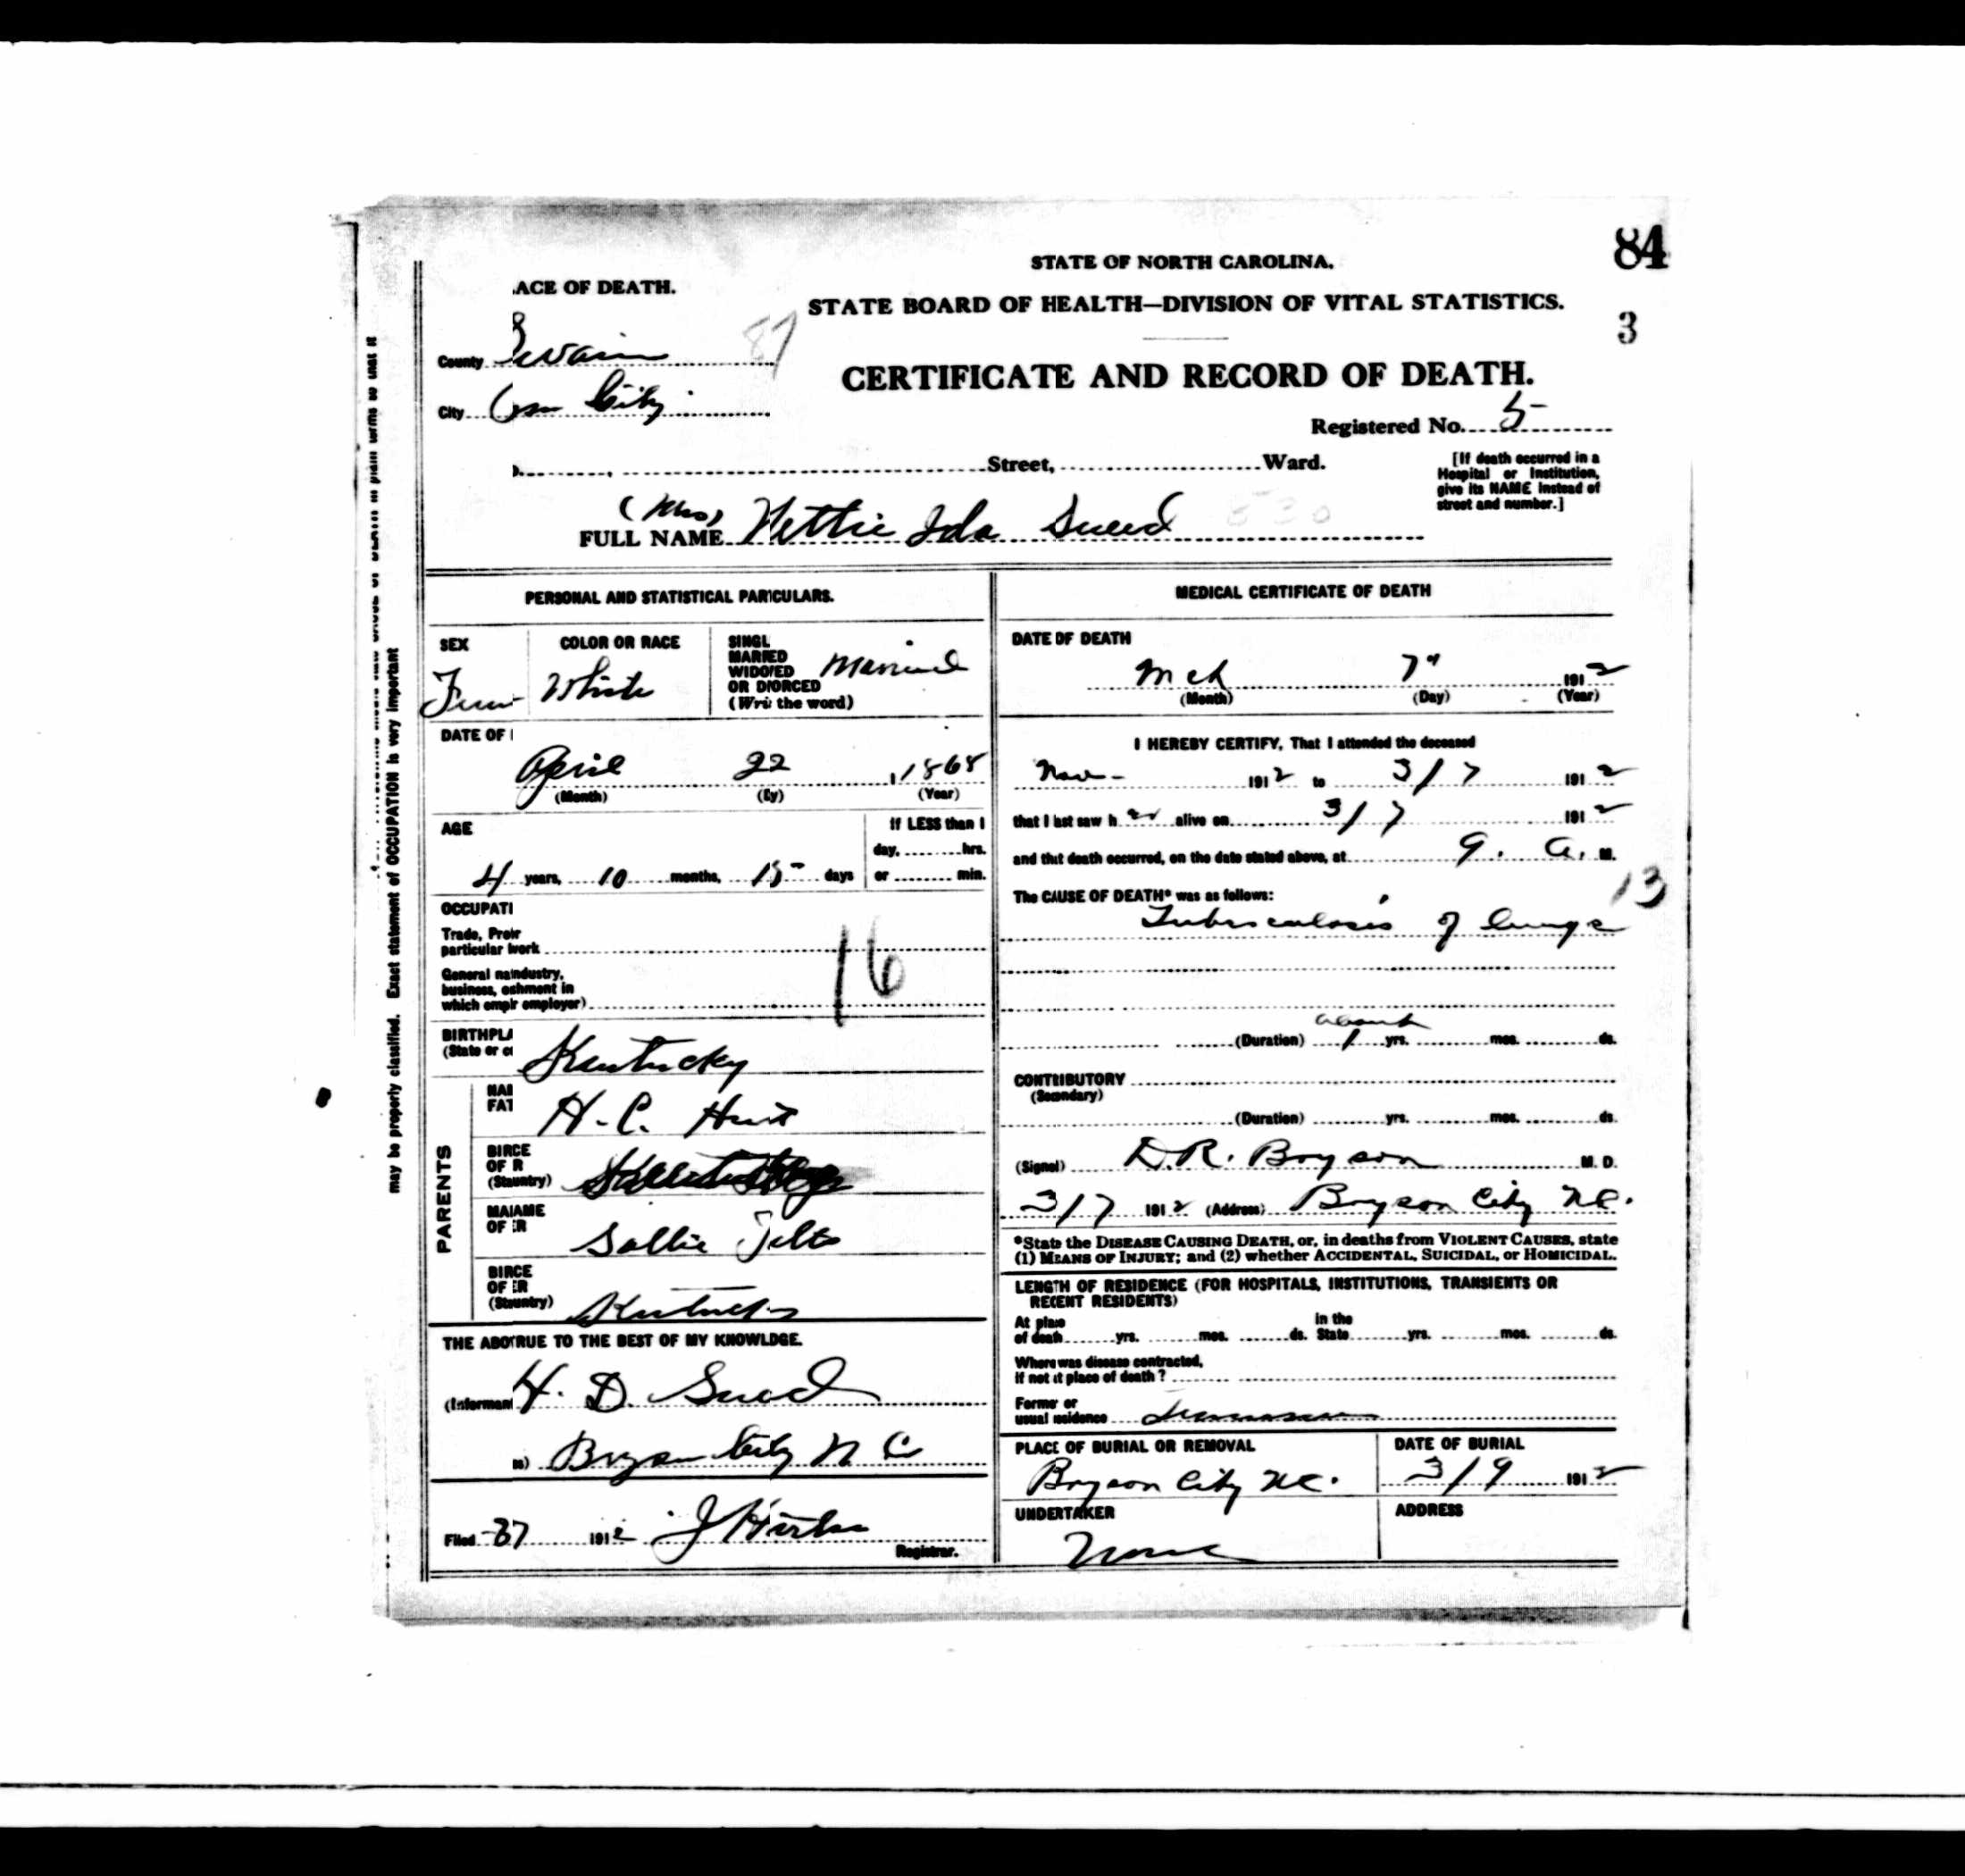 84
STATE OF NORTH CAROLINA.
ACE OF DEATH.
STATE BOARD OF HEALTH—DIVISION OF VITAL STATISTICS.
3
87
County Swain
CERTIFICATE AND RECORD OF DEATH.
City City
Registered No. 5
Street, Ward.
[If death occurred in a
Hospital or Institution,
give its NAME instead of
street and number.]
(Mrs)
FULL NAME Nettie Ida Sneed
530
may be properly classified. Exact statement of OCCUPATION is very important
PERSONAL AND STATISTICAL PARICULARS.
SEX
Fem
COLOR OR RACE
White
SINGL
MARIED
WIDOED
OR DIORCED
(Wri the word)
Married
DATE OF
April 22 1868
(Month) (Dy) (Year)
AGE
If LESS than 1
day, hrs.
or min.
4 years, 10 months, 15 days
OCCUPATI
Trade, Profr
particular work
General naindustry,
business, oshment in
which emplr employer)
16
BIRTHPLA
(State or c
Kentucky
PARENTS
NAI
FAT
H. C.
BIRCE
OF R
(Stauntry)
MAIAME
OF ER
Sallie
BIRCE
OF ER
(Stauntry)
Kentucky
THE ABOTRUE TO THE BEST OF MY KNOWLDGE.
(Informan H. D. Sneed
ss) Bryson City N C
Filed 37 1912 J
Registrar.
MEDICAL CERTIFICATE OF DEATH
DATE OF DEATH
Mch 7" 1912
(Month) (Day) (Year)
I HEREBY CERTIFY, That I attended the deceased
1912 to 3/7 1912
that I last saw her alive on 3/7 1912
and that death occurred, on the date stated above, at 9. a. M.
13
The CAUSE OF DEATH* was as follows:
Tuberculosis of lungs
about
(Duration) 1 yrs. mos. ds.
CONTRIBUTORY
(Secondary)
(Duration) yrs. mos. ds.
(Signed) D.R. Bryson M. D.
3/7 1912 (Address) Bryson City N.C.
*State the DISEASE CAUSING DEATH, or, in deaths from VIOLENT CAUSES, state
(1) MEANS OF INJURY; and (2) whether ACCIDENTAL, SUICIDAL, or HOMICIDAL.
LENGTH OF RESIDENCE (FOR HOSPITALS, INSTITUTIONS, TRANSIENTS OR
RECENT RESIDENTS)
At place
of death yrs. mos. ds.
In the
State yrs. mos. ds.
Where was disease contracted,
if not at place of death?
Former or
usual residence
PLACE OF BURIAL OR REMOVAL
Bryson City N.C.
DATE OF BURIAL
3/9 1912
UNDERTAKER
None
ADDRESS